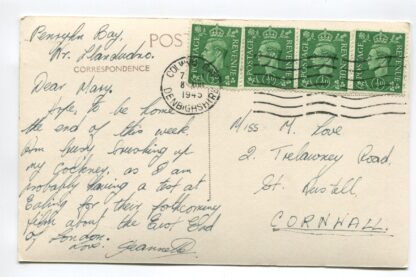 Penrhyn Bay,
Nr. Llandudno.
POST
CORRESPONDENCE
Dear Mary,
Hope to be home
the end of this week
am busy brushing up
my Cockney, as I am
probably having a test at
Ealing for their forthcoming
film about the East End
of London.
Love. Jeannette
POSTAGE REVENUE
POSTAGE REVENUE
POSTAGE REVENUE
POSTAGE REVENUE
COLWYN BAY
1945
DENBIGHSHIRE
Miss. M. Love
2. Trelawney Road,
St. Austell.
CORNWALL.